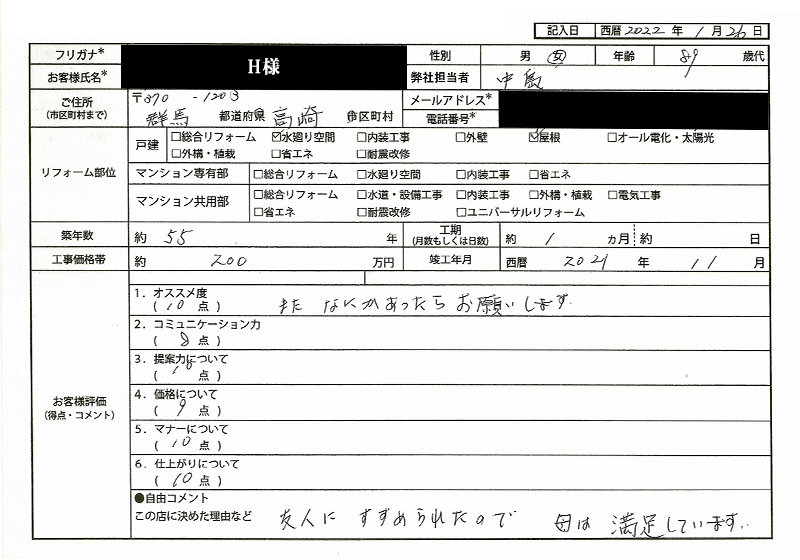 記入日 西暦 2022 年 1 月 26 日
フリガナ* H様 性別 男 女 年齢 89 歳代
お客様氏名* 弊社担当者 中島
ご住所 (市区町村まで) 〒370 -1203 メールアドレス*
群馬 都道府県 高崎 市区町村 電話番号*
リフォーム部位 戸建 □総合リフォーム ☑水廻り空間 □内装工事 □外壁 ☑屋根 □オール電化・太陽光
□外構・植栽 □省エネ □耐震改修
マンション専有部 □総合リフォーム □水廻り空間 □内装工事 □省エネ
マンション共用部 □総合リフォーム □水道・設備工事 □内装工事 □外構・植栽 □電気工事
□省エネ □耐震改修 □ユニバーサルリフォーム
築年数 約 55 年 工期 (月数もしくは日数) 約 1 ヵ月 約 日
工事価格帯 約 200 万円 竣工年月 西暦 2021 年 11 月
お客様評価 (得点・コメント)
1. オススメ度
( 10 点 ) また なにかあったら お願いします.
2. コミュニケーション力
( 8 点 )
3. 提案力について
( 10 点 )
4. 価格について
( 9 点 )
5. マナーについて
( 10 点 )
6. 仕上がりについて
( 10 点 )
●自由コメント
この店に決めた理由など 友人に すすめられたので 母は 満足しています.